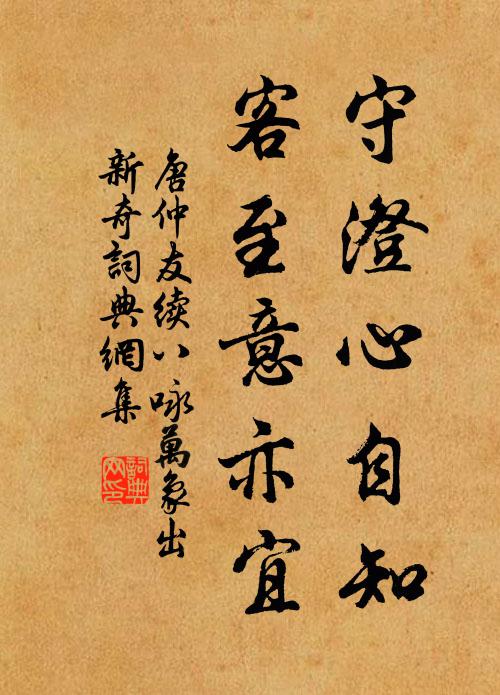 守澄心自知
客至意亦宜
唐仲友續八咏萬象出
新奇詞典網集
詞典
网印